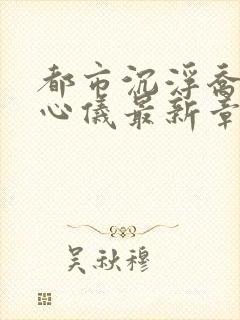 都市沉浮乔
心仪最新章
吴秋穆